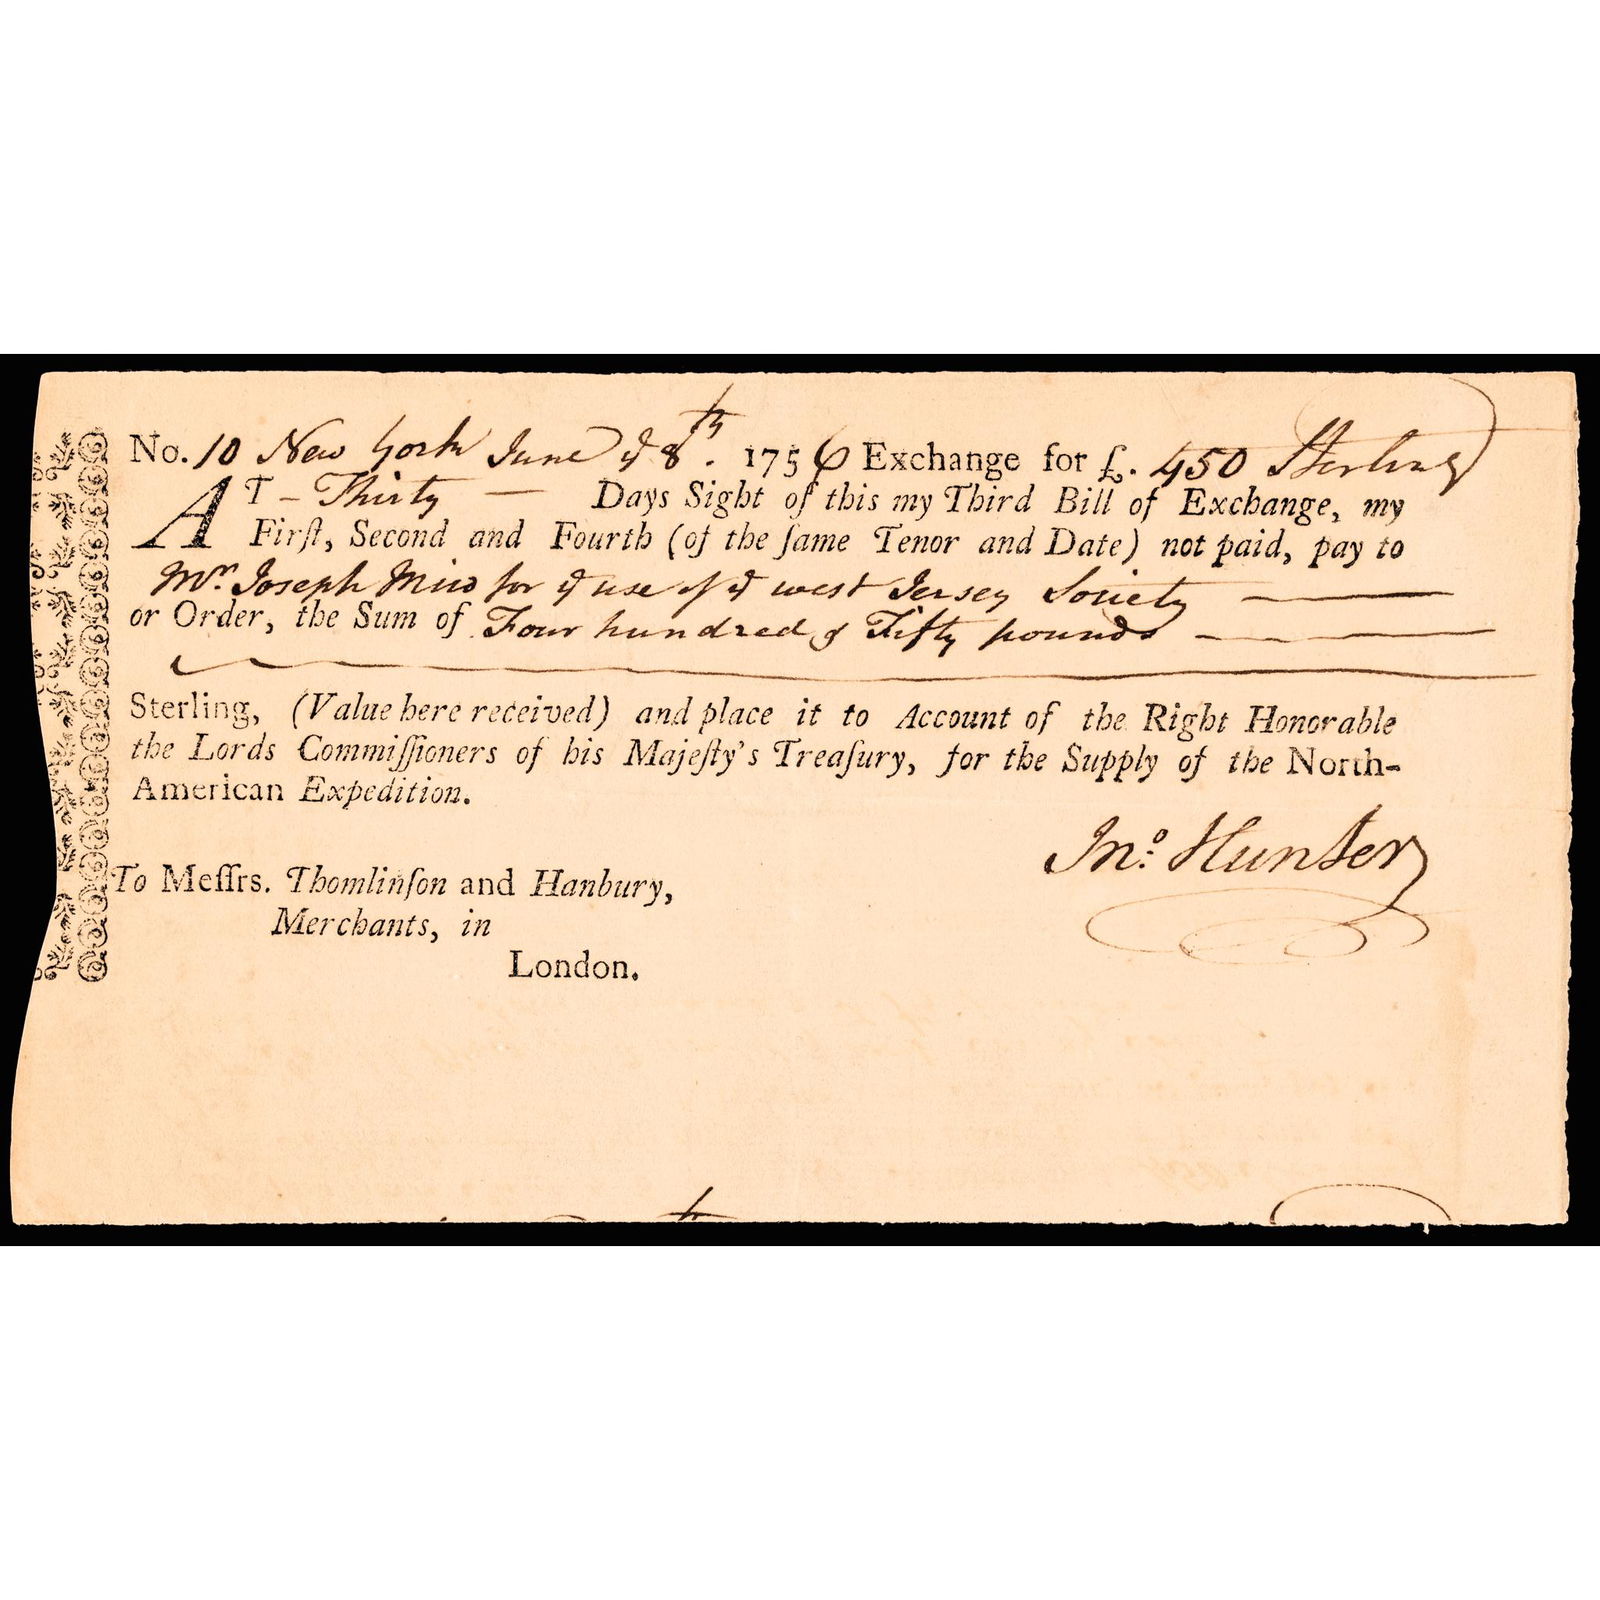 No. 10 New York June yͤ 8th. 1756 Exchange for £. 450 Sterling
AT – Thirty — Days Sight of this my Third Bill of Exchange, my
Firſt, Second and Fourth (of the ſame Tenor and Date) not paid, pay to
Mr. Joseph Mico for yͤ use of yͤ west Jersey Society
or Order, the Sum of Four hundred & Fifty pounds
Sterling, (Value here received) and place it to Account of the Right Honorable
the Lords Commiſſioners of his Majeſty's Treaſury, for the Supply of the North-
American Expedition.
Jno: Hunter
To Meſſrs. Thomlinſon and Hanbury,
Merchants, in
London.